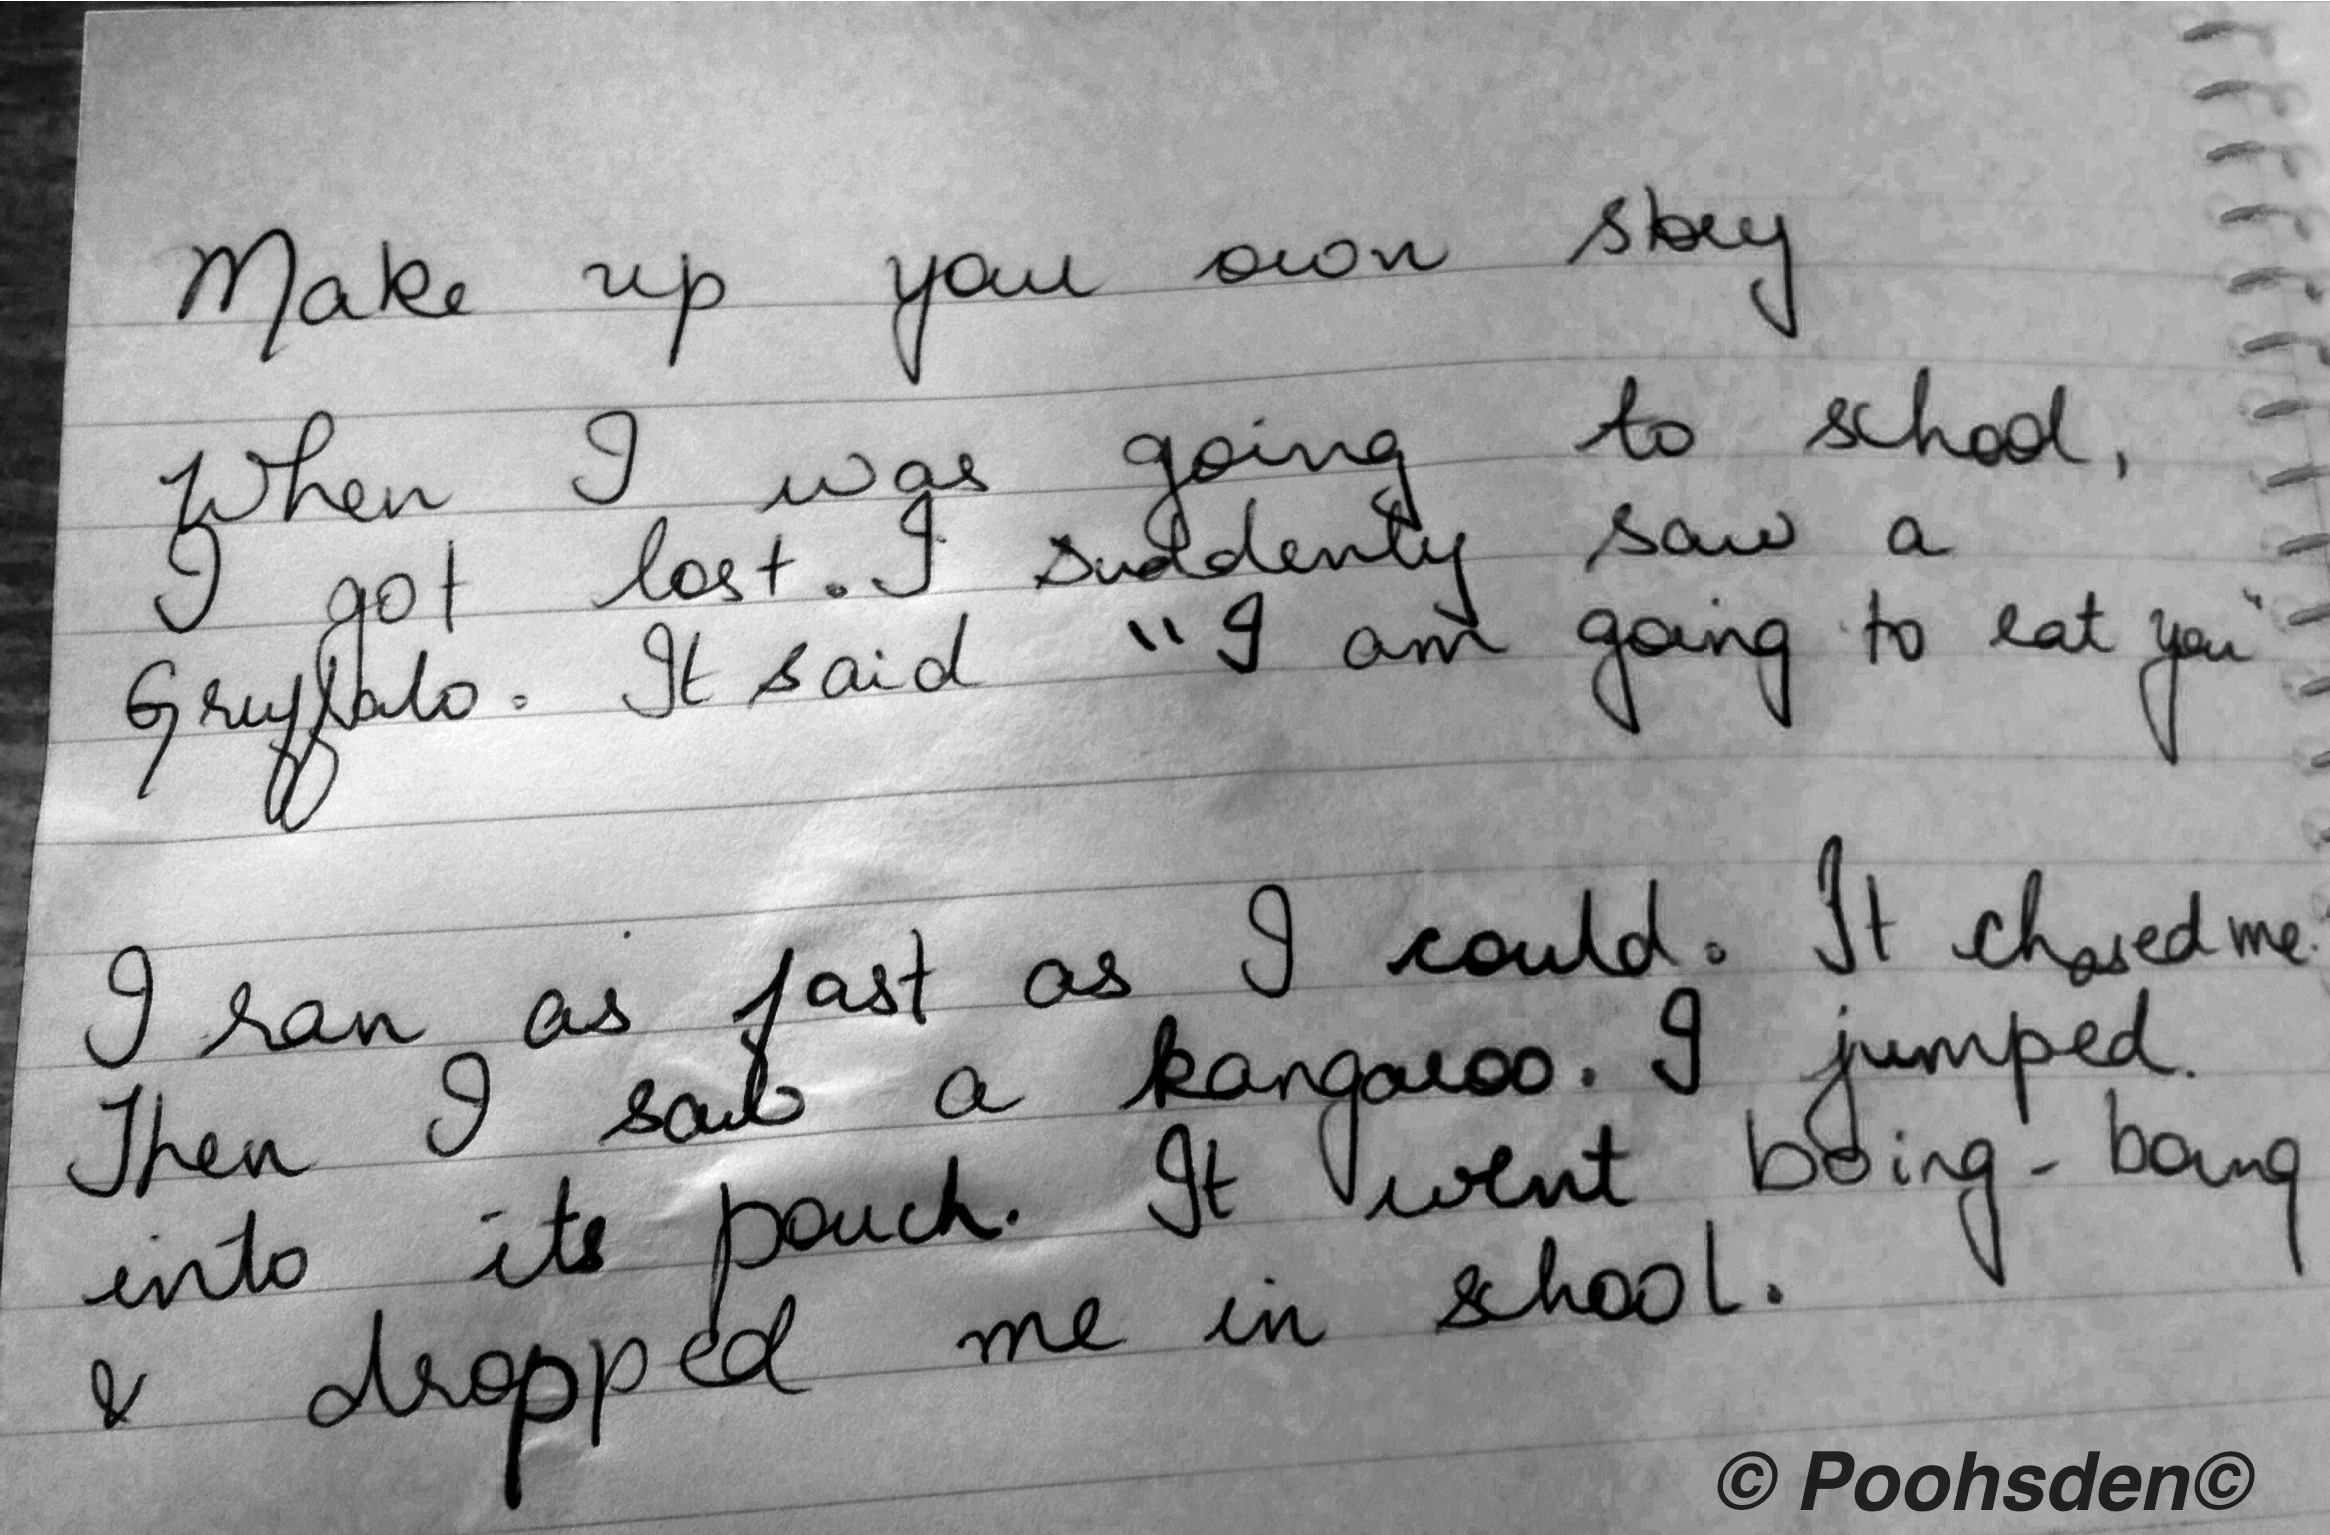 Make up your own story
When I was going to school,
I got lost. I suddenly saw a
Gruffalo. It said "I am going to eat you"
I ran as fast as I could. It chased me.
Then I saw a kangaroo. I jumped.
into its pouch. It went boing-boing
& dropped me in school.
© Poohsden©